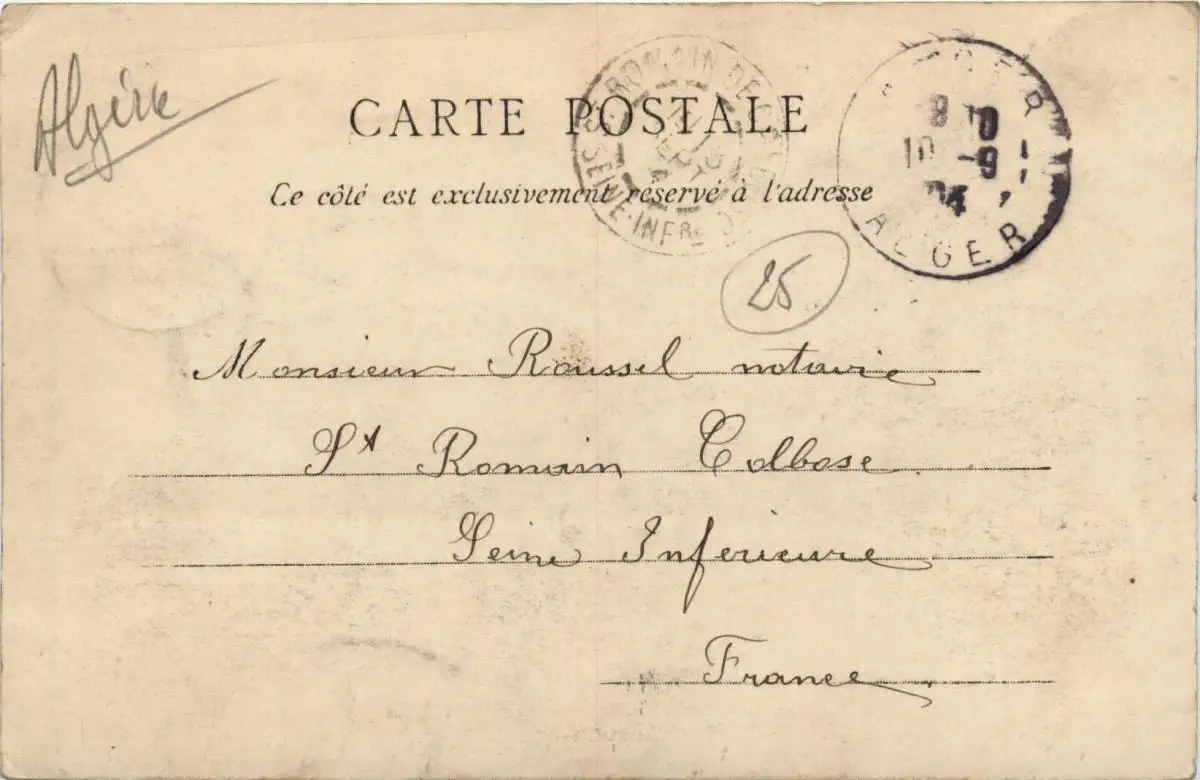 Algérie
CARTE POSTALE
Ce côté est exclusivement réservé à l'adresse
ROMAIN DE
SEINE-INFRE
ALGER
10 -9
04
ALGER
25
Monsieur Roussel notaire
St Romain Colbose
Seine Inferieure
France